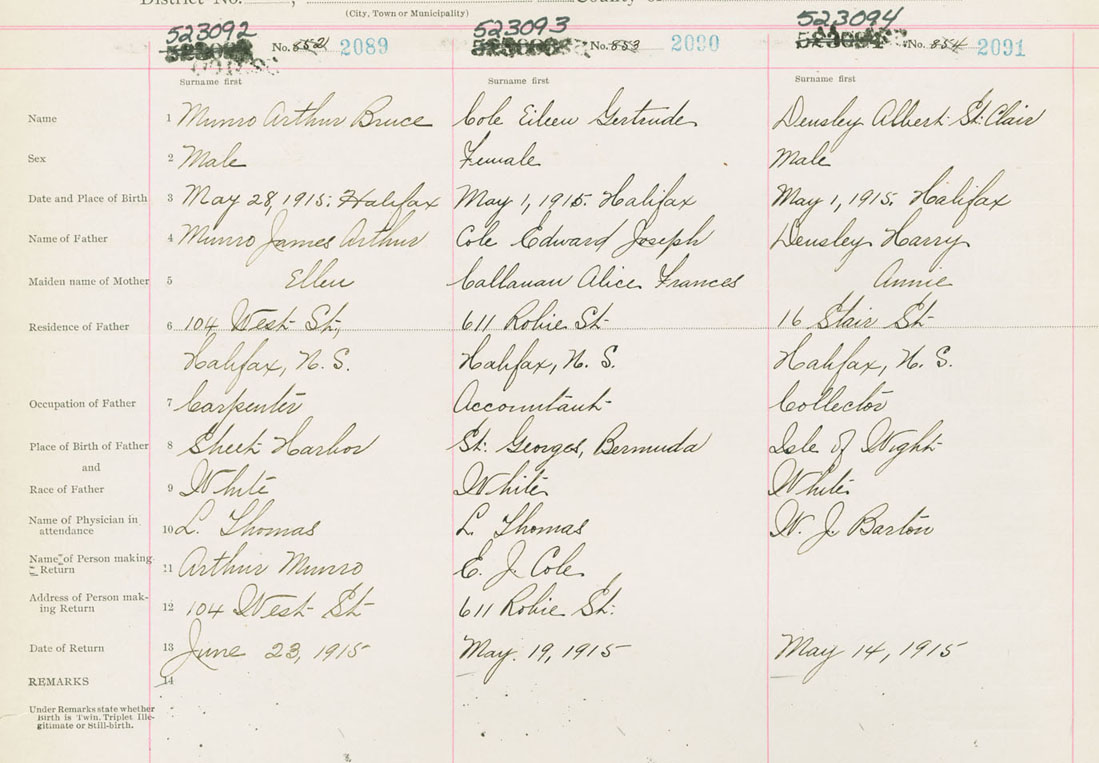 District No. , County of
(City, Town or Municipality)
523092 523093 523094
No. 852 2089 No. 853 2090 No. 854 2091
Surname first Surname first Surname first
Name 1 Munro Arthur Bruce Cole Eileen Gertrude Densley Albert St. Clair
Sex 2 Male Female Male
Date and Place of Birth 3 May 28, 1915. Halifax May 1, 1915. Halifax May 1, 1915. Halifax
Name of Father 4 Munro James Arthur Cole Edward Joseph Densley Harry
Maiden name of Mother 5 Ellen Callanan Alice Frances Annie
Residence of Father 6 104 West St, 611 Robie St. 16 Stair St.
Halifax, N. S. Halifax, N. S. Halifax, N. S.
Occupation of Father 7 Carpenter Accountant Collector
Place of Birth of Father 8 Sheet Harbor St. Georges, Bermuda Isle of Wight
and
Race of Father 9 White White White
Name of Physician in
attendance 10 L. Thomas L. Thomas W. J. Barton
Name of Person making
Return 11 Arthur Munro E. J. Cole
Address of Person mak-
ing Return 12 104 West St 611 Robie St.
Date of Return 13 June 23, 1915 May. 19, 1915 May 14, 1915
REMARKS 14
Under Remarks state whether
Birth is Twin, Triplet Ille-
gitimate or Still-birth.